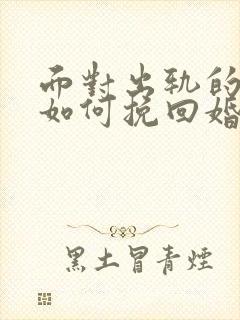 而對出軌的
如何挽回婚
黑土冒青煙